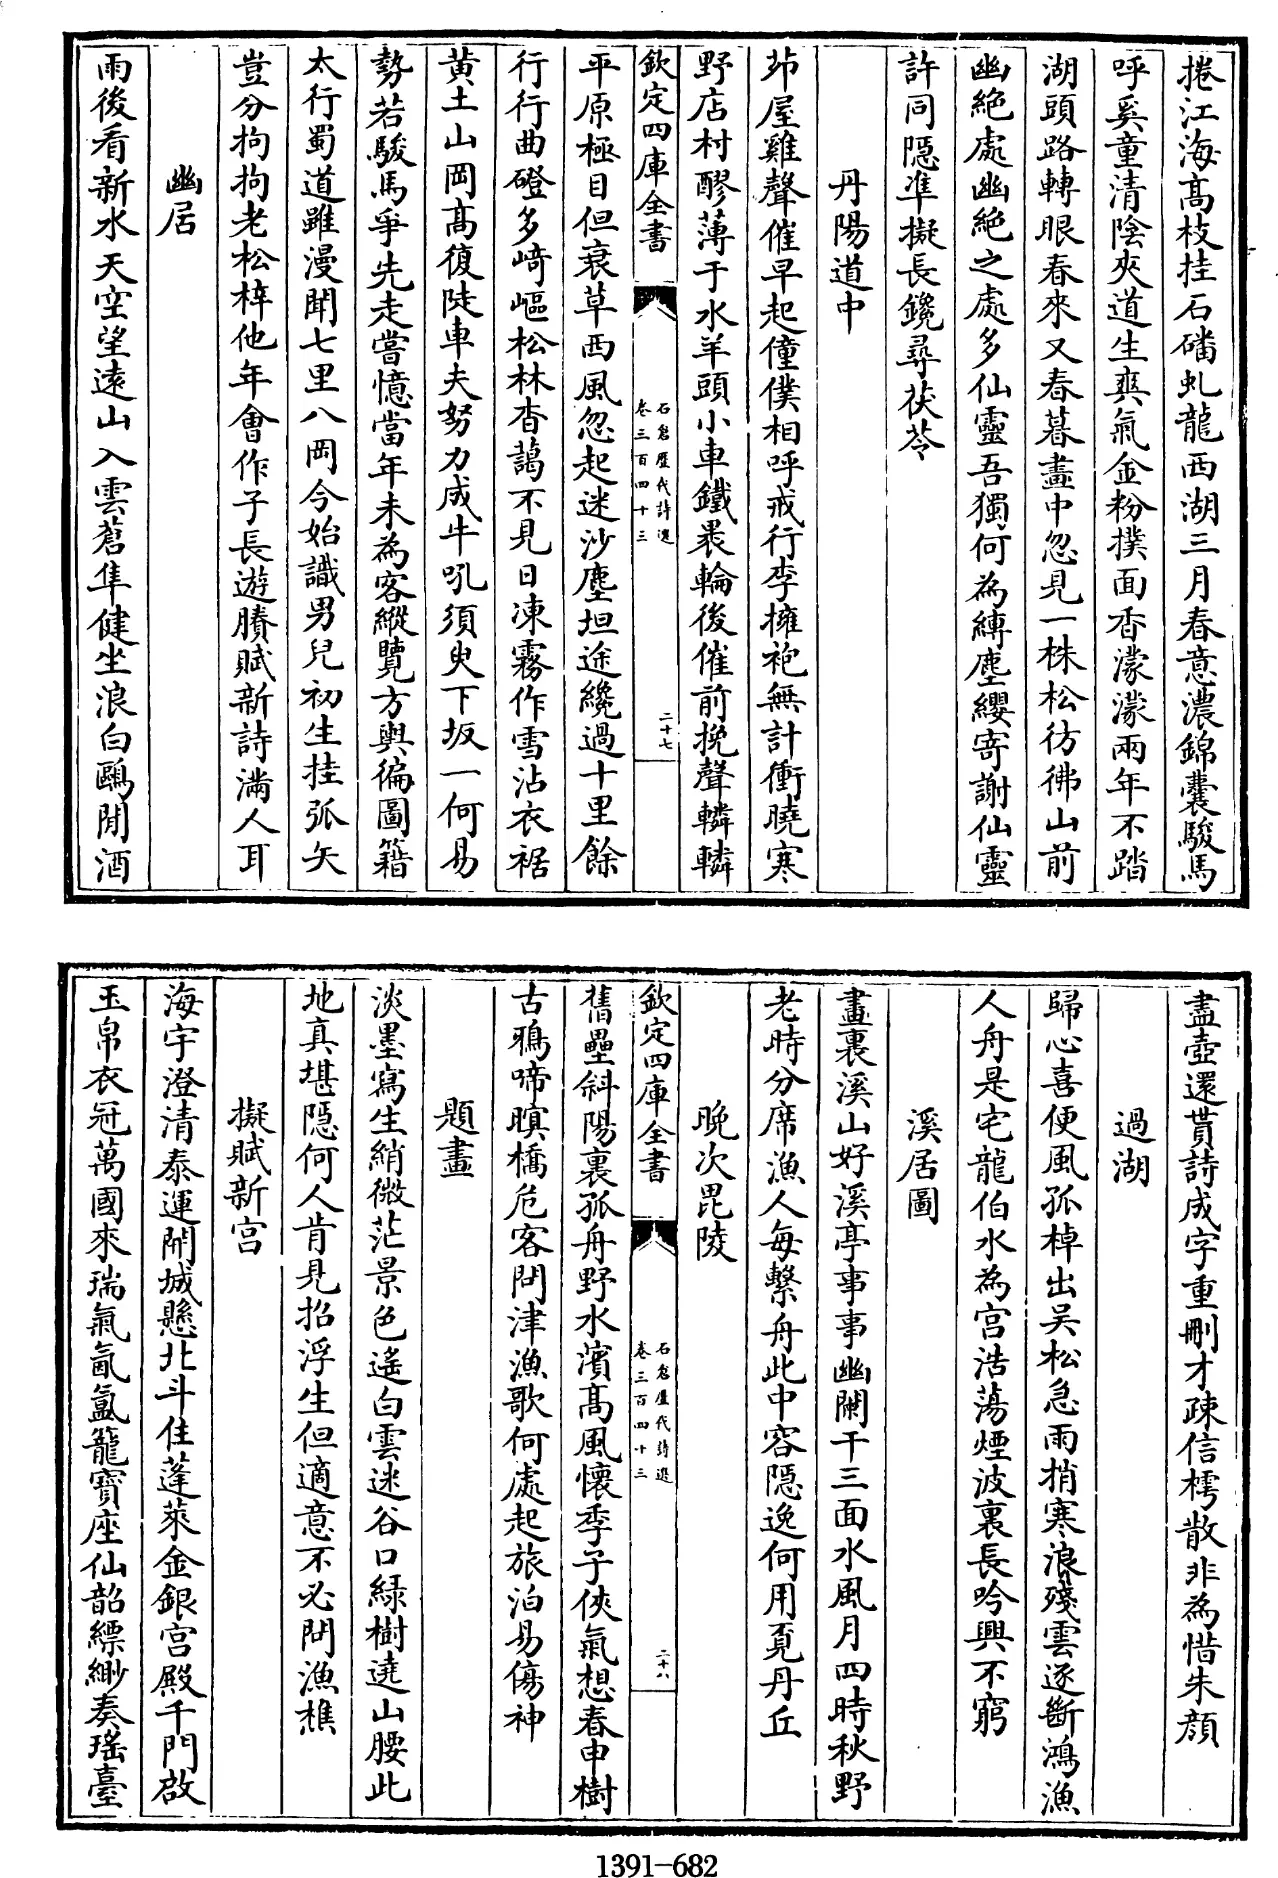 捲江海高枝挂石磻虬龍西湖三月春意濃錦囊駿馬
呼奚童清陰夾道生爽氣金粉撲面香濛濛兩年不踏
湖頭路轉眼春來又春暮畫中忽見一株松彷彿山前
幽絶處幽絶之處多仙靈吾獨何為縛塵纓寄謝仙靈
許同隠準擬長鑱尋茯苓
丹陽道中
茆屋雞聲催早起僮僕相呼戒行李擁袍無計衝曉寒
野店村醪薄于水羊頭小車鐵裹輪後催前挽聲轔轔
欽定四庫全書
石倉歷代詩選
卷三百四十三
二十七
平原極目但衰草西風忽起迷沙塵坦途纔過十里餘
行行曲磴多崎嶇松林杳藹不見日凍霧作雪沾衣裾
黄土山岡髙復陡車夫努力成牛吼須臾下坂一何易
勢若駿馬爭先走嘗憶當年未為客縱覽方輿徧圖籍
太行蜀道雖漫聞七里八岡今始識男兒初生挂弧矢
豈分拘拘老松梓他年會作子長遊賸賦新詩滿人耳
幽居
雨後看新水天空望遠山入雲蒼隼健坐浪白鷗閒酒
盡壺還貰詩成字重刪才疎信樗散非為惜朱顔
過湖
歸心喜便風孤棹出吴松急雨捎寒浪殘雲逐斷鴻漁
人舟是宅龍伯水為宫浩蕩煙波裏長吟興不窮
溪居圖
畫裏溪山好溪亭事事幽闌干三面水風月四時秋野
老時分席漁人每繫舟此中容隠逸何用覔丹丘
晚次毘陵
欽定四庫全書
石倉歷代詩選
卷三百四十三
二十八
舊壘斜陽裏孤舟野水濱髙風懷季子俠氣想春申樹
古鴉啼暝橋危客問津漁歌何處起旅泊易傷神
題畫
淡墨寫生綃微茫景色遙白雲迷谷口緑樹遶山腰此
地真堪隠何人肯見招浮生但適意不必問漁樵
擬賦新宫
海宇澄清泰運開城懸北斗住蓬萊金銀宫殿千門啟
玉帛衣冠萬國來瑞氣氤氲籠寳座仙韶縹緲奏瑶臺
1391-682